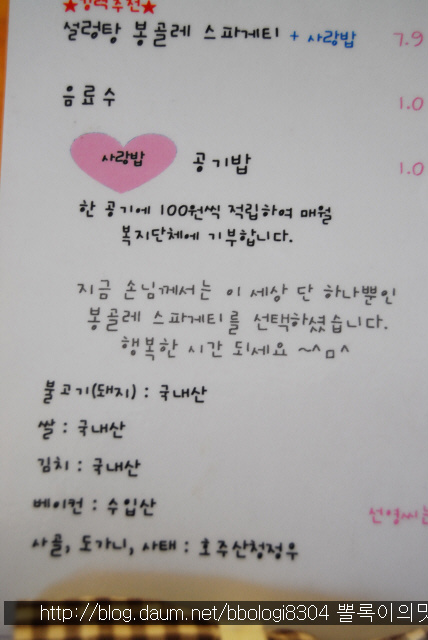 ★강력추천★
설렁탕 봉골레 스파게티 + 사랑밥 7.9
음료수 1.0
사랑밥 공기밥 1.0
한 공기에 100원씩 적립하여 매월
복지단체에 기부합니다.
지금 손님께서는 이 세상 단 하나뿐인
봉골레 스파게티를 선택하셨습니다.
행복한 시간 되세요 ~^ㅁ^
불고기(돼지) : 국내산
쌀 : 국내산
김치 : 국내산
베이컨 : 수입산
선영씨는
사골, 도가니, 사태 : 호주산청정우
http://blog.daum.net/bbologi8304 뽈록이의맛